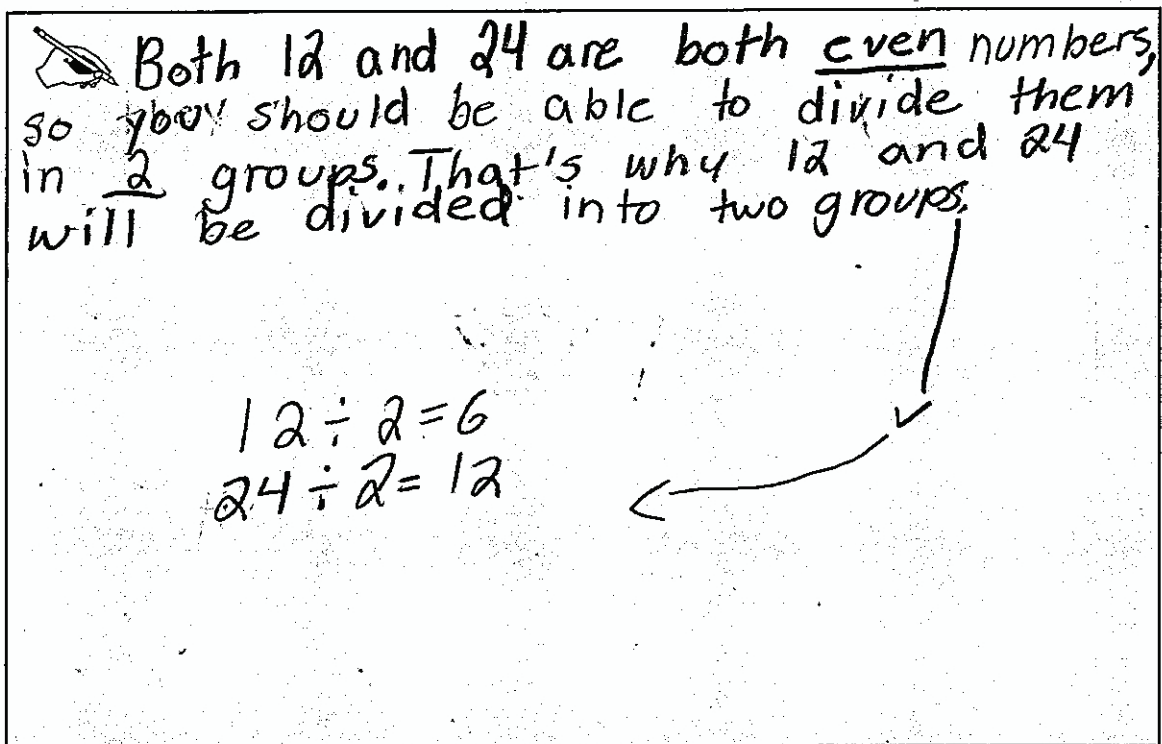 Both 12 and 24 are both even numbers,
so you should be able to divide them
in 2 groups. That's why 12 and 24
will be divided into two groups.
12 ÷ 2 = 6
24 ÷ 2 = 12